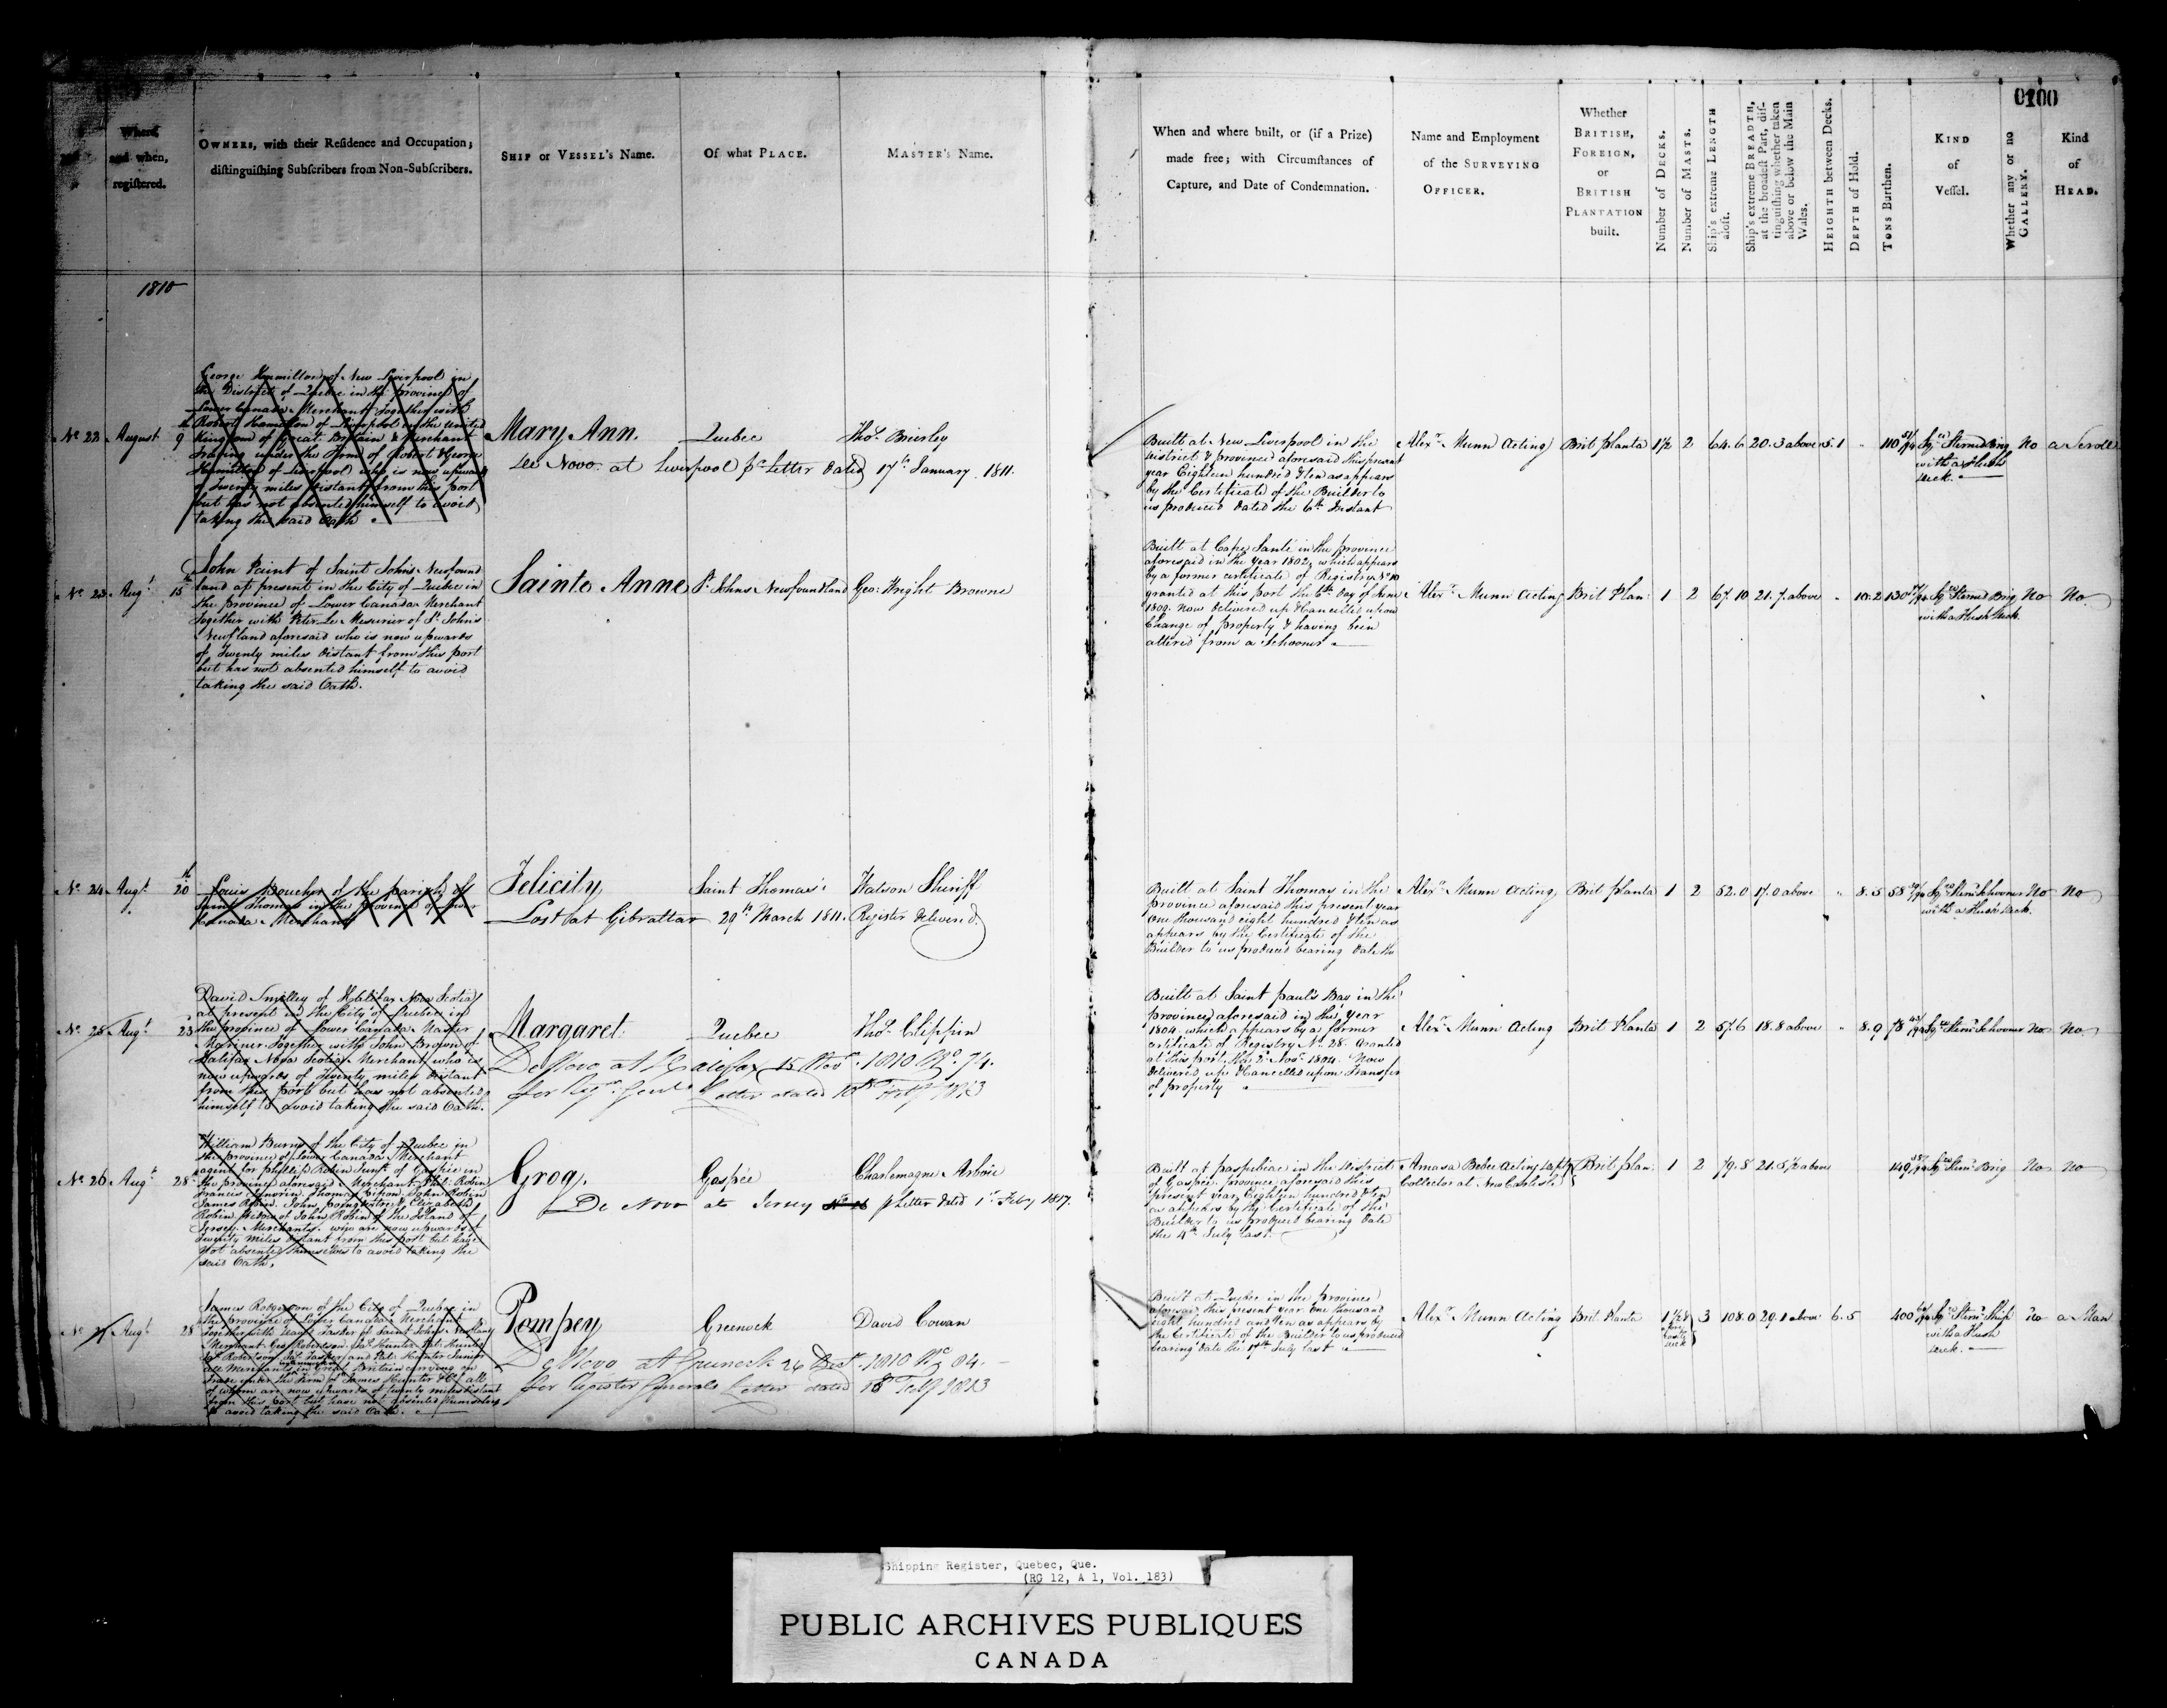 0100
Where
and when,
registered.
OWNERS, with their Residence and Occupation;
distinguishing Subscribers from Non-Subscribers.
SHIP or VESSEL's Name.
Of what PLACE.
MASTER's Name.
When and where built, or (if a Prize)
made free; with Circumstances of
Capture, and Date of Condemnation.
Name and Employment
of the SURVEYING
OFFICER.
Whether
BRITISH,
FOREIGN,
or
BRITISH
PLANTATION
built.
Number of DECKS.
Number of MASTS.
Ship's extreme LENGTH
aloft.
Ship's extreme BREADTH,
at the broadest Part, dis-
tinguishing whether taken
above or below the Main
Wales.
HEIGHTH between Decks.
DEPTH of Hold.
TONS Burthen.
KIND
of
Vessel.
Whether any or no
GALLERY.
Kind
of
HEAD.
1810
No 22 August 9th
George Hammilton of New Liverpool in
the District of Quebec in the province of
Lower Canada Merchant Together with
Robert Hamilton of Liverpool in the United
Kingdom of Great Britain & Merchant
Trading under the Firm of Robert & George
Hamilton of Liverpool who is now upwards
of Twenty miles distant from this port
but has not absented himself to avoid
taking the said Oath
Mary Ann. Quebec Thos. Brierly
See Novo. at Liverpool pr Letter dated 17th January 1811.
Built at New Liverpool in the
District & province aforesaid this present
year Eighteen hundred & ten as appears
by the Certificate of the Builder to
us produced dated the 6th Instant
Alexr. Munn Acting Brit planta 1½ 2 64.6 20.3 above 5.1 " 110 Sqr. Sternd Brig No a Scroll
with a Flush
deck.
No 23 Augt 15th
John Paint of Saint Johns Newfound
land at present in the City of Quebec in
the province of Lower Canada Merchant
Together with Peter Le Mesurier of St. Johns
Newfland aforesaid who is now upwards
of Twenty miles distant from this port
but has not absented himself to avoid
taking the said Oath.
Sainte Anne St. Johns Newfoundland Geo: Wright Browne
Built at Cape Santé in the province
aforesaid in the year 1802, which appears
by a former certificate of Registry No 10
granted at this port the 6th day of June
1809. Now delivered up & Cancelled upon
Change of property & having been
altered from a Schooner
Alexr. Munn Acting Brit Plan: 1 2 67.10 21.7 above " 10.2 130 Sqr. Sternd Brig No No
with a Flush deck.
No 24 Augt. 20th
Louis Boucher of the parish of
Saint Thomas in the Province of Lower
Canada Merchant
Felicity Saint Thomas Watson Sheriff
Lost at Gibraltar 29th March 1811. Register deliver'd.
Built at Saint Thomas in the
province aforesaid this present year
One thousand eight hundred & ten as
appears by the Certificate of the
Builder to us produced bearing date the
Alexr. Munn Acting Brit planta 1 2 52.0 17.0 above " 8.5 58 Sqr. Stern Schooner No No
with a Flush deck.
No 25 Augt 23
David Smelley of Halifax Nova Scotia
at present in the City of Quebec in
the province of Lower Canada Master
Mariner Together with John Brown of
Halifax Nova Scotia Merchant who is
now upwards of Twenty miles distant
from this port but has not absented
himself to avoid taking the said Oath.
Margaret. Quebec Thos. Clippin
De Novo at Halifax 15 Novr. 1810 No. 74.
per Regr. Genls Letter dated 18th Feby 1813
Built at Saint paul's Bay in the
province aforesaid in the year
1804 which appears by a former
certificate of Registry No. 28. Granted
at this port the 2d Novr. 1804. Now
delivered up & Cancelled upon Transfer
of property
Alexr. Munn Acting Brit Planta 1 2 57.6 18.8 above " 8.9 78 Sqr. Stern Schooner No No
No 26 Augt 28
William Burns of the City of Quebec in
the province of Lower Canada Merchant
agent for Phillip Robin Junr. of Gaspie in
the province aforesaid Merchant, Phil: Robin
James Robin. John
Robin Widow of John Robin of the Island of
Jersey Merchants. who are now upwards of
Twenty miles distant from this port but have
not absented themselves to avoid taking the
said Oath.
Grog. Gaspée Charlemagne Arboir
De Novo at Jersey pr Letter dated 1st Feby 1817.
Built at paspebiac in the District
of Gaspée province aforesaid this
present year Eighteen hundred & ten
as appears by the Certificate of the
Builder to us produced bearing date
the 4th July last.
Amasa Bebee Acting Depty Brit plan: 1 2 79.8 21.5½ above 149 Sqr. Stern Brig No No
Collector at New Carlisle
No 27 Augt 28
James Robertson of the City of Quebec in
the province of Lower Canada Merchant
Together with Isaac Tasker of Saint Johns Newfland
Merchant Geo Robertson, Jas. Hunter, Pat: Hunter
and Pat: Hunter Junior
all Merchants in Great Britain carrying on
trade under the Firm of James Hunter & Co. all
of whom are now upwards of twenty miles distant
from this port but have not absented themselves
to avoid taking the said Oath.
Pompey Greenock David Cowan
De Novo at Greenock 26 Dect. 1810 No. 84.
per Register Generals Letter dated 18 Feby 1813
Built at Quebec in the province
aforesaid this present year One thousand
eight hundred and Ten as appears by
the Certificate of the Builder to us produced
bearing date the 17th July last
Alexr. Munn Acting Brit Planta 3 108.0 29.1 above 6.5 400 Sqr. Stern Ship No a Man
with a Flush
deck.
Shipping Register, Quebec, Que.
(RG 12, A 1, Vol. 183)
PUBLIC ARCHIVES PUBLIQUES
CANADA